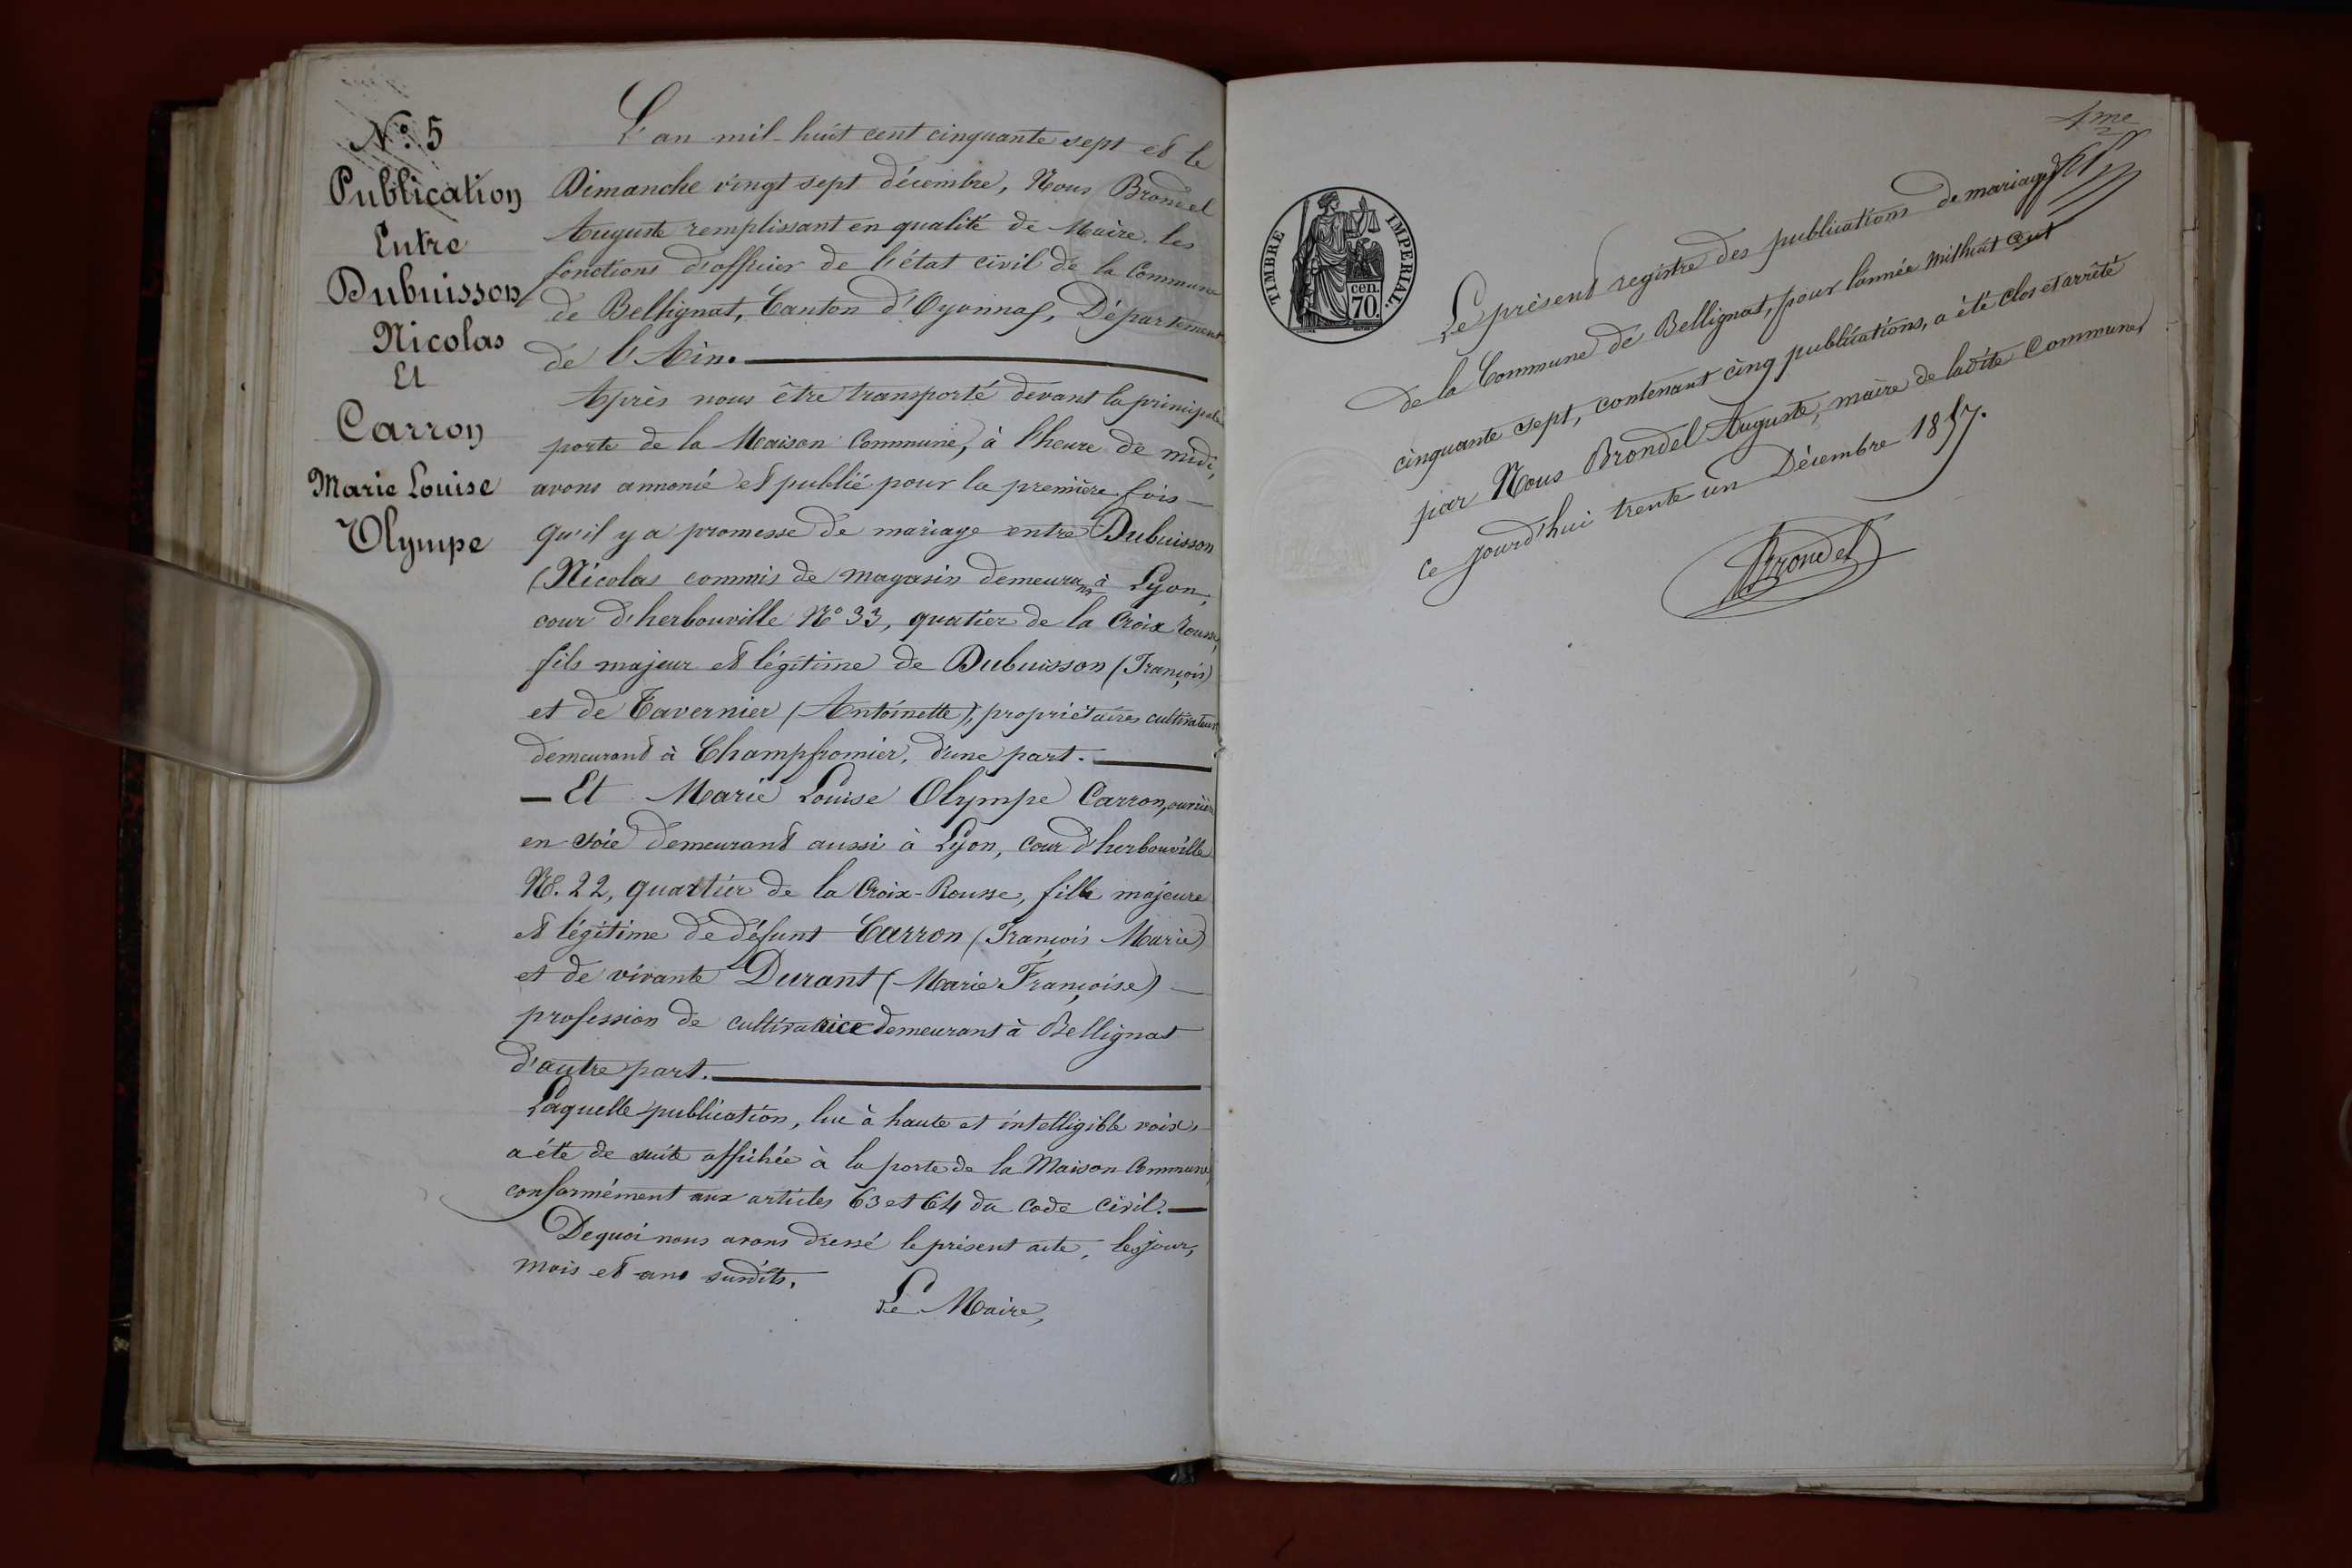 N.º 5
Publication
Entre
Dubuisson
Nicolas
Et
Carron
Marie Louise
Olympe
L'an mil-huit cent cinquante sept et le
Dimanche vingt sept décembre, Nous Brondel
Auguste remplissant en qualité de Maire les
fonctions d'officier de l'état civil de la Commune
de Bellignat, Canton d'Oyonnax, Département
de l'Ain.
Après nous être transporté devant la principale
porte de la Maison Commune, à l'heure de midi,
avons annoncé et publié pour la première fois
qu'il y a promesse de mariage entre Dubuisson
(Nicolas commis de magasin demeurant à Lyon,
cour d'herbouville Nº 33, quatier de la Croix rousse,
fils majeur et légitime de Dubuisson (François)
et de Tavernier (Antoinette), propriétaires cultivateurs
demeurant à Champfromier, d'une part.
Et Marie Louise Olympe Carron, ouvrière
en soie demeurant aussi à Lyon, cour d'herbouville
Nº. 22, quartier de la Croix-Rousse, fille majeure
et légitime de défunt Carron (François Marie)
et de vivante Durant (Marie Françoise)
profession de cultivatrice demeurant à Bellignat
d'autre part.
Laquelle publication, lue à haute et intelligible voix,
a été de suite affichée à la porte de la Maison Commune,
conformément aux articles 63 et 64 du code civil.
De quoi nous avons dressé le présent acte, les jour,
mois et ans susdits.
Le Maire,
4me
TIMBRE IMPERIAL.
cen.
70.
Le présent registre des publications de mariage
de la Commune de Bellignat, pour l'année mil huit cent
cinquante sept, contenant cinq publications, a été clos et arrêté
par Nous Brondel Auguste, maire de ladite Commune,
ce jourd'hui trente un Décembre 1857.
Brondel